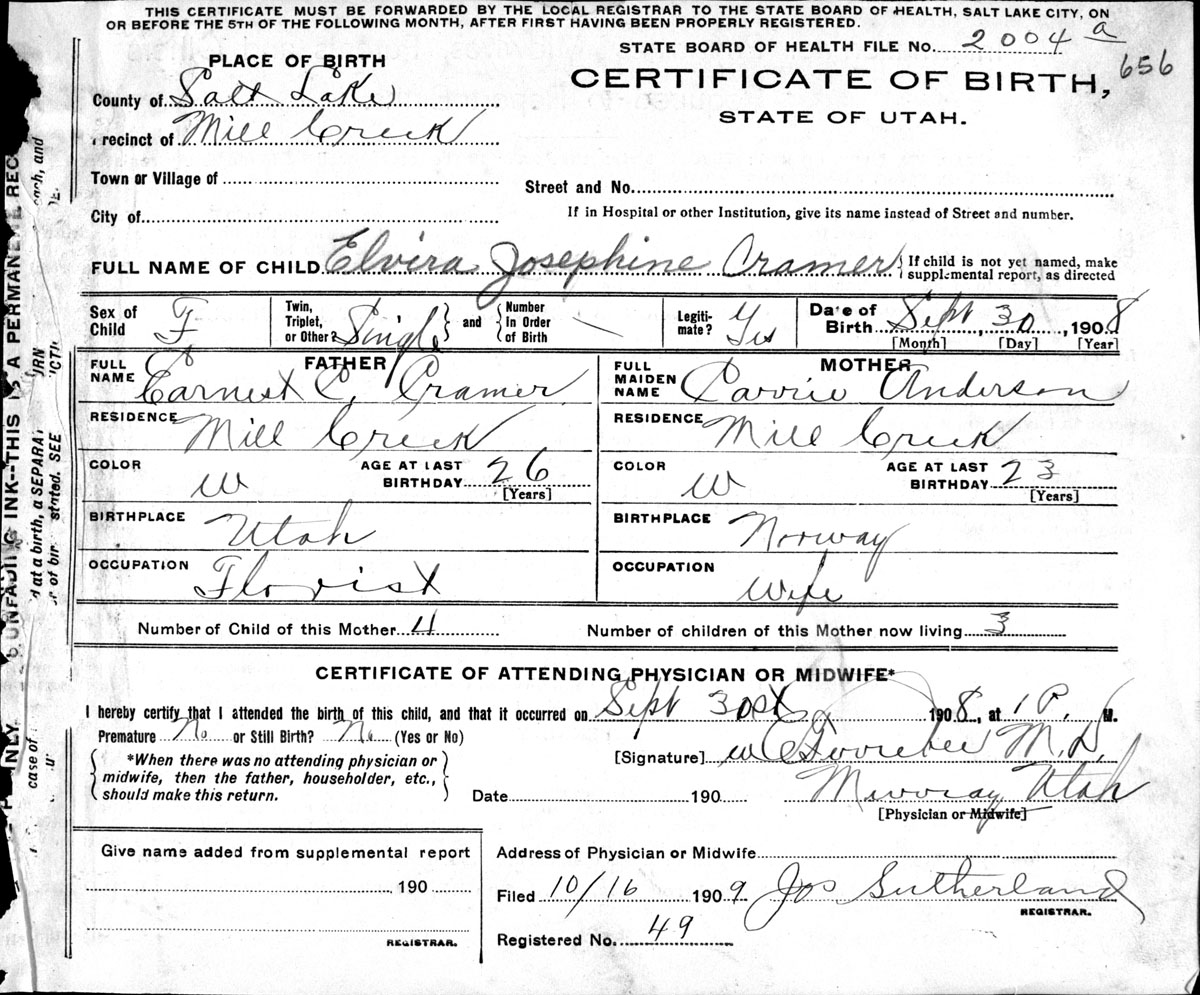 THIS CERTIFICATE MUST BE FORWARDED BY THE LOCAL REGISTRAR TO THE STATE BOARD OF HEALTH, SALT LAKE CITY, ON
OR BEFORE THE 5TH OF THE FOLLOWING MONTH, AFTER FIRST HAVING BEEN PROPERLY REGISTERED.
STATE BOARD OF HEALTH FILE NO. 2004 a
656
PLACE OF BIRTH
CERTIFICATE OF BIRTH,
County of Salt Lake
STATE OF UTAH.
recinct of Mill Creek
Town or Village of
Street and No.
City of
If in Hospital or other Institution, give its name instead of Street and number.
FULL NAME OF CHILD Elvira Josephine Cramer { If child is not yet named, make supplemental report, as directed
Sex of Child F
Twin, Triplet, or Other? Single } and { Number In Order of Birth
Legitimate? Yes
Date of Birth Sept, 30, 1908
[Month] [Day] [Year]
FATHER
FULL NAME Earnest C. Cramer
MOTHER
FULL MAIDEN NAME Carrie Anderson
RESIDENCE Mill Creek
RESIDENCE Mill Creek
COLOR W AGE AT LAST BIRTHDAY 26 [Years]
COLOR W AGE AT LAST BIRTHDAY 23 [Years]
BIRTHPLACE Utah
BIRTHPLACE Norway
OCCUPATION Florist
OCCUPATION Wife
Number of Child of this Mother 4
Number of children of this Mother now living 3
CERTIFICATE OF ATTENDING PHYSICIAN OR MIDWIFE*
I hereby certify that I attended the birth of this child, and that it occurred on Sept 30st 1908, at 1 P. M.
Premature No or Still Birth? No (Yes or No)
[Signature] M.D.
{ *When there was no attending physician or midwife, then the father, householder, etc., should make this return. }
Date 190
Murray Utah
[Physician or Midwife]
Give name added from supplemental report
190
REGISTRAR.
Address of Physician or Midwife
Filed 10/16 1909 Jos Sutherland
REGISTRAR.
Registered No. 49
UNFADING INK--THIS IS A PERMANENT REC
at a birth, a SEPARA
stated. SEE
case of